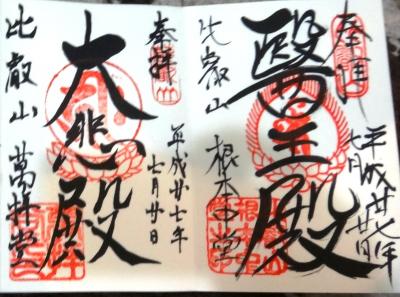 奉拝
平成廿七年
七月廿日
醫王殿
比叡山
根本中堂
奉拝
平成廿七年
七月廿日
大悲殿
比叡山
萬拝堂